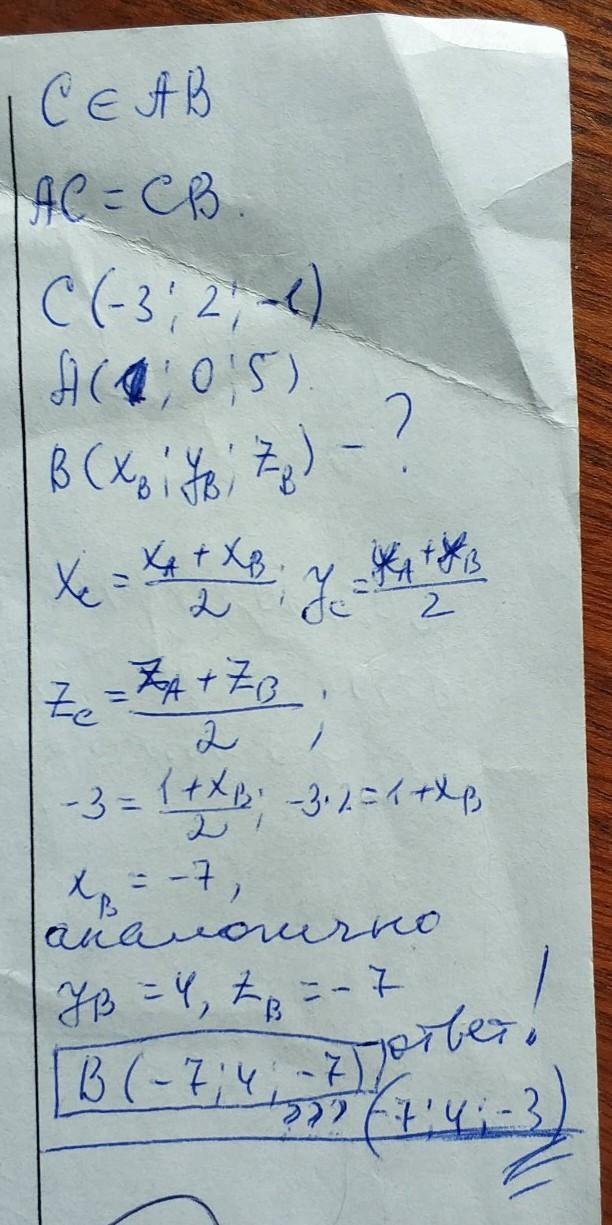 C ∈ AB
AC = CB.
C(-3; 2; -1)
A(1; 0; 5).
B(x_B; y_B; z_B) - ?
x_c = (x_A + x_B)/2; y_c = (y_A + y_B)/2
z_c = (z_A + z_B)/2;
-3 = (1 + x_B)/2; -3·2 = 1 + x_B
x_B = -7,
аналогично
y_B = 4, z_B = -7
B(-7; 4; -7) ответ!
??? (-7; 4; -3)